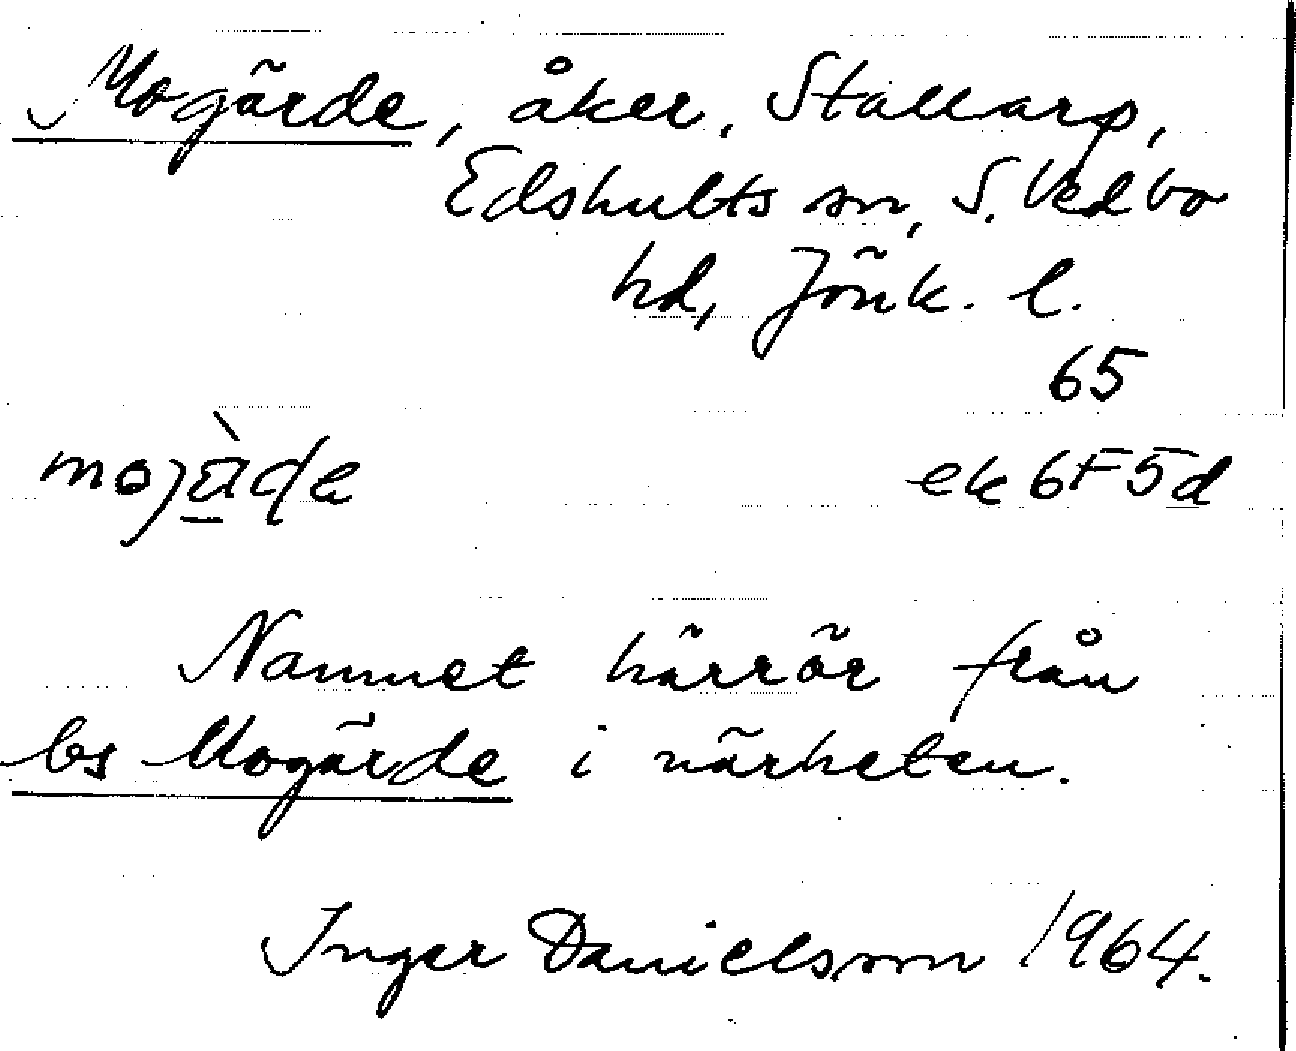 Mogärde, åker, Stallarp,
Edshults sn, S. Vedbo
hd, Jönk. l.
65
ek 6F5d
Namnet härrör från
bs Mogärde i närheten.
Inger Danielsson 1964.